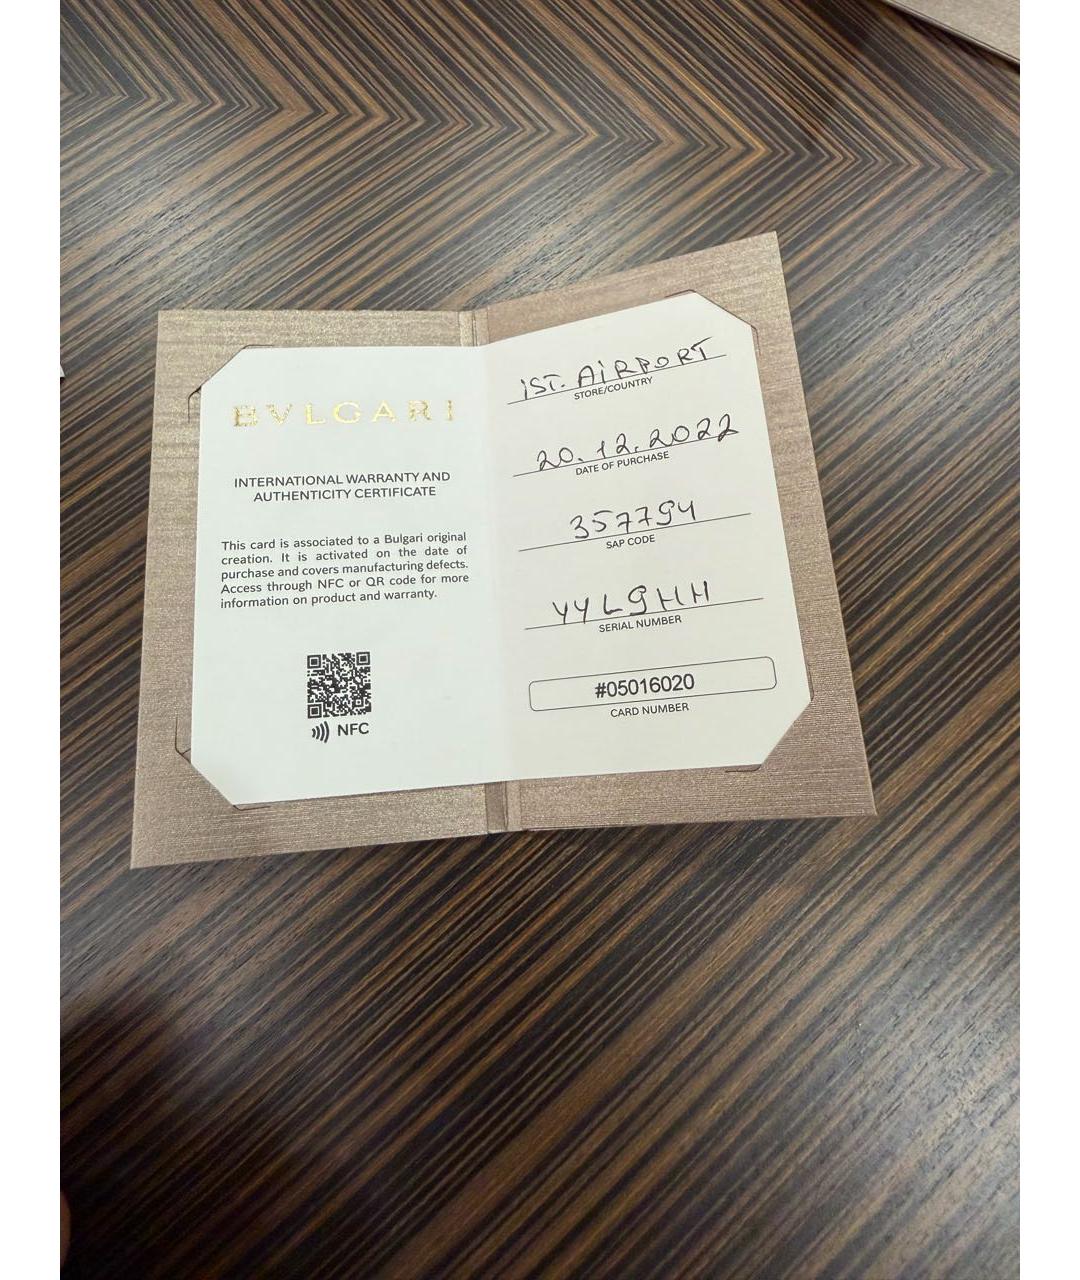 BVLGARI
INTERNATIONAL WARRANTY AND
AUTHENTICITY CERTIFICATE
This card is associated to a Bulgari original
creation. It is activated on the date of
purchase and covers manufacturing defects.
Access through NFC or QR code for more
information on product and warranty.
NFC
iST. AiRPORT
STORE/COUNTRY
20.12.2022
DATE OF PURCHASE
357794
SAP CODE
YYL9HH
SERIAL NUMBER
#05016020
CARD NUMBER